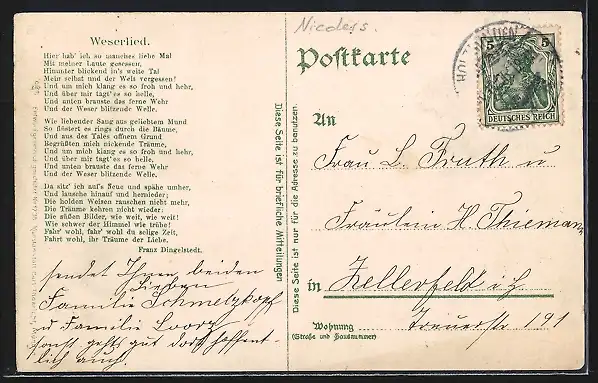 Weserlied.
Hier hab' ich so manches liebe Mal
Mit meiner Laute gesessen,
Hinunter blickend in's weite Tal
Mein selbst und der Welt vergessen!
Und um mich klang es so froh und hehr,
Und über mir tagt' es so helle,
Und unten brauste das ferne Wehr
Und der Weser blitzende Welle.
Wie liebender Sang aus geliebtem Mund
So flüstert es rings durch die Bäume,
Und aus des Tales offnem Grund
Begrüßten mich nickende Träume,
Und um mich klang es so froh und hehr,
Und über mir tagt' es so helle,
Und unten brauste das ferne Wehr
Und der Weser blitzende Welle.
Da sitz' ich auf's Neue und spähe umher,
Und lausche hinauf und hernieder;
Die holden Weisen rauschen nicht mehr,
Die Träume kehren nicht wieder;
Die süßen Bilder, wie weit, wie weit!
Wie schwer der Himmel wie trübe!
Fahr' wohl, fahr' wohl du selige Zeit,
Fahrt wohl, ihr Träume der Liebe.
Franz Dingelstedt.
sendet Ihnen beiden
Lieben
Familie Schmelzkopf
u Familie
sonst gehts gut dort hoffent-
lich auch.
Diese Seite ist für briefliche Mitteilungen
Diese Seite ist nur für die Adresse zu benutzen.
Postkarte
5 5
DEUTSCHES REICH
An
Frau L. Fruth u
Fräulein H. Thiemann
in Zellerfeld i. H
Wohnung
(Straße und Hausnummer)
191